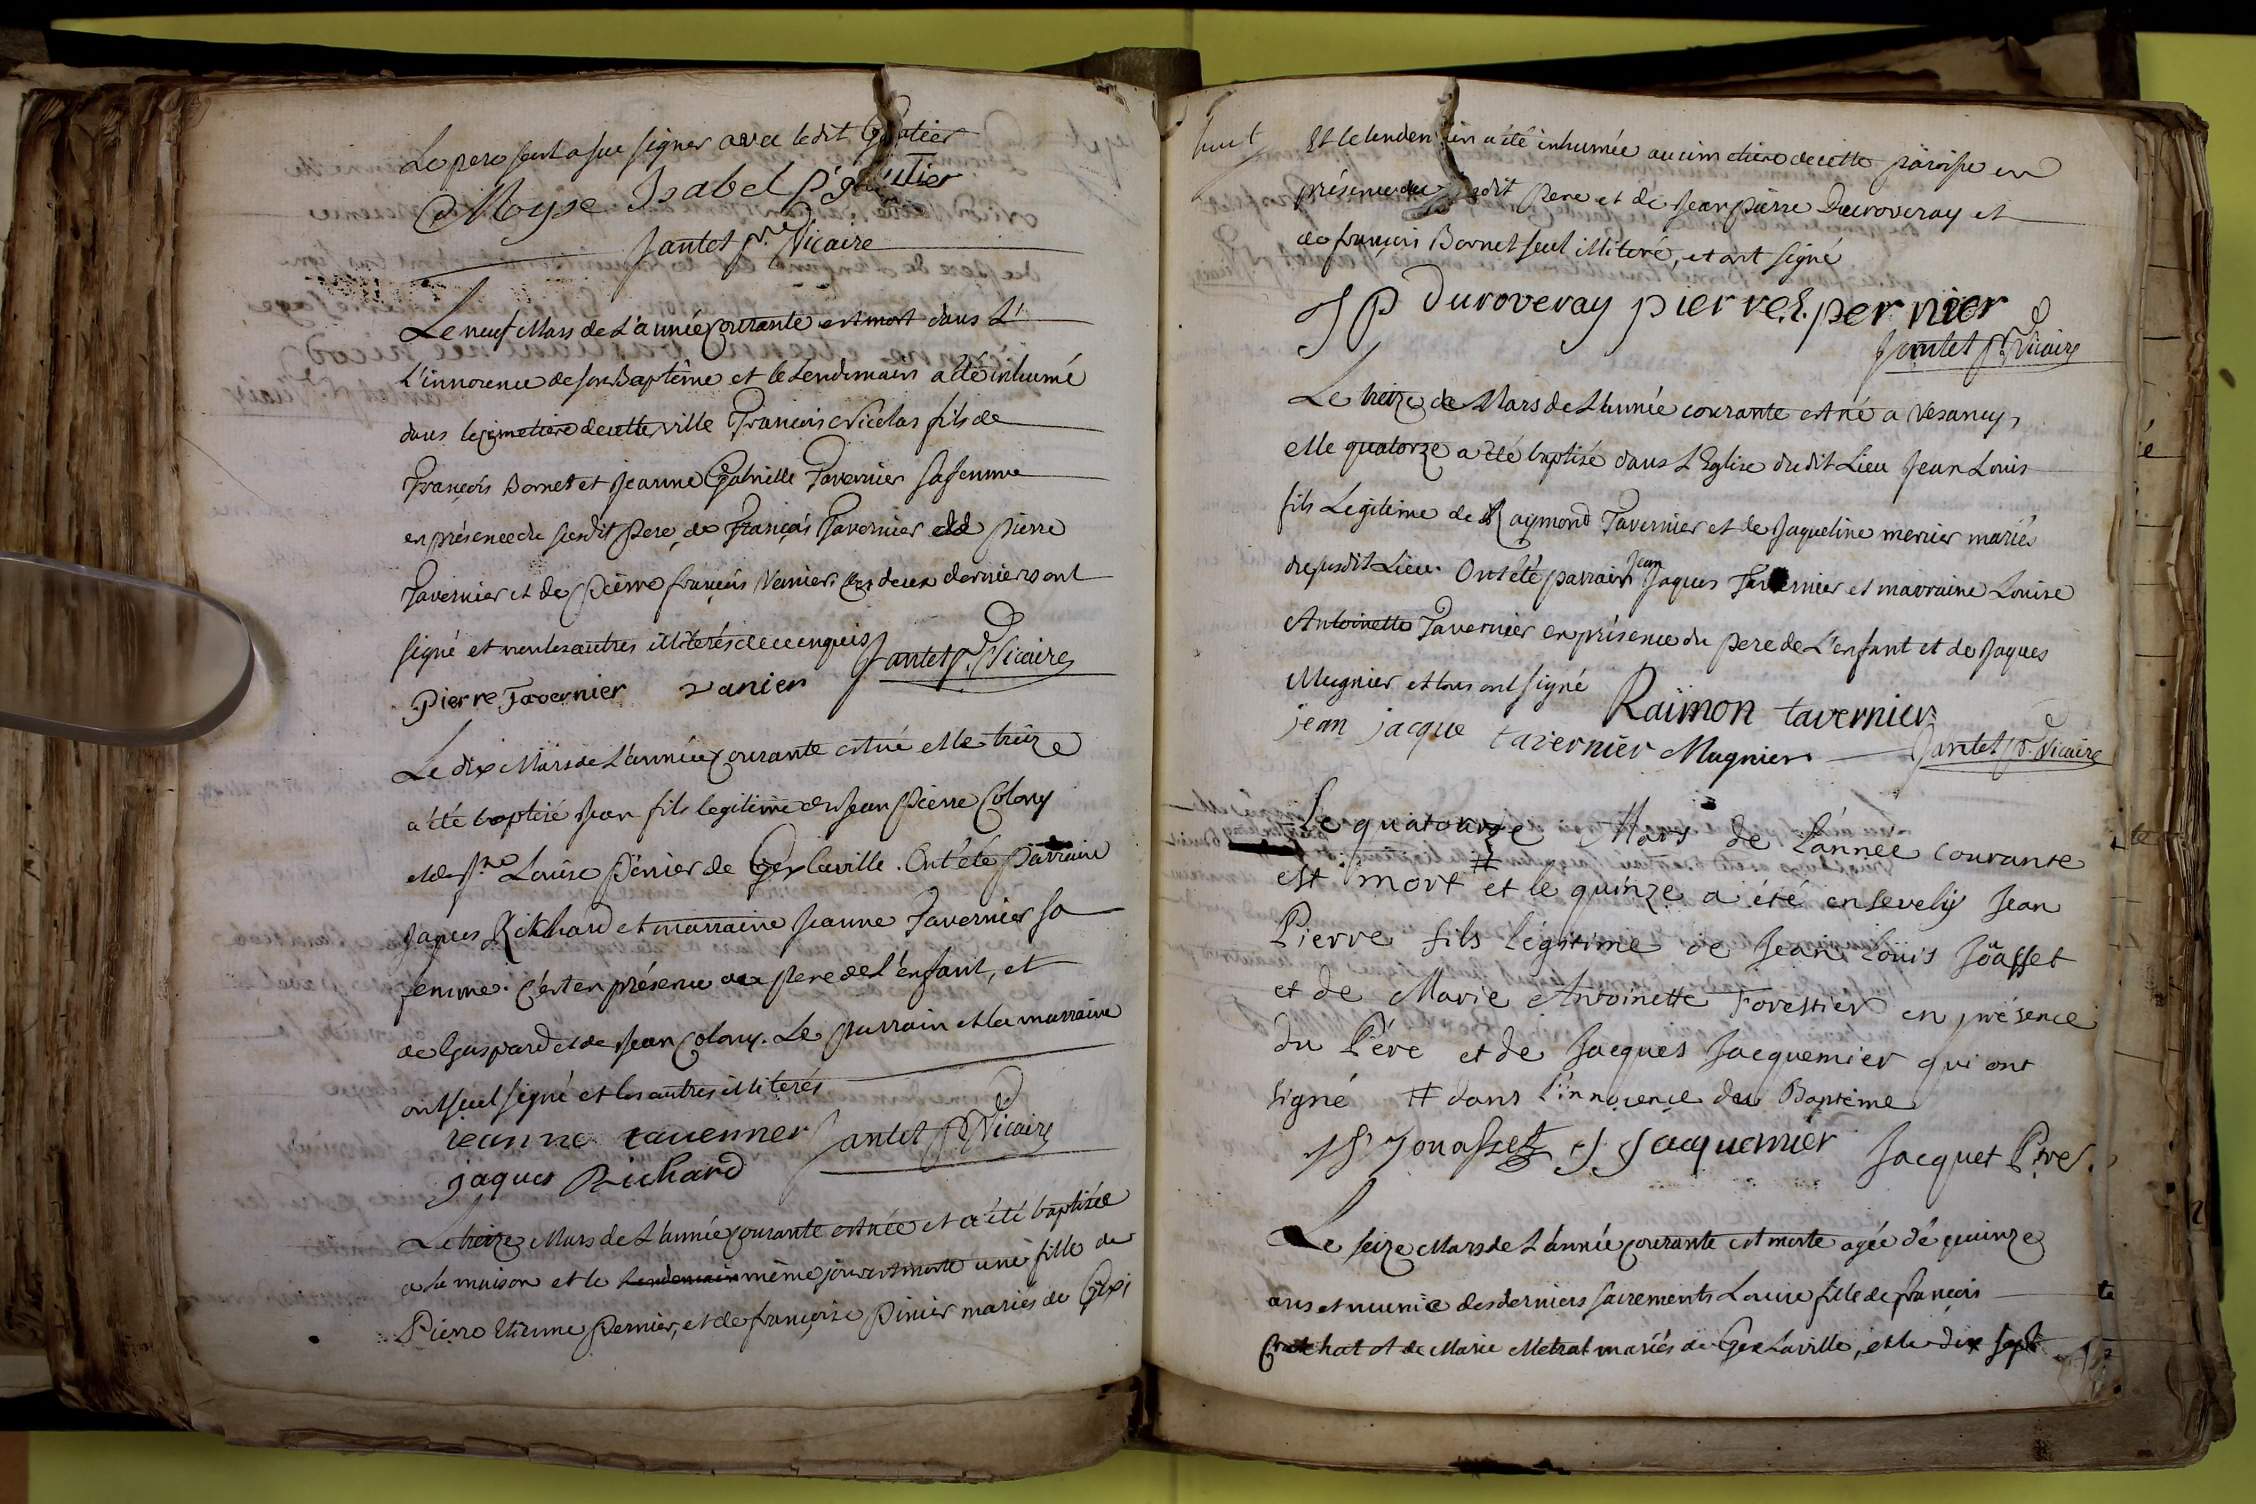 Le pere seul a sue signer avec ledit Gautier
Moyse Isabel P Gautier
Jantet p.re Vicaire
Le neuf Mars de L'année courante est mort dans L'
L'innocence de son Baptême et le Lendemain a été inhumé
dans le cimetiere de cette ville François Nicolas fils de
François Bornet et Jeanne Gabrielle Tavernier sa femme
en présence du susdit Pere, de François Tavernier de pierre
Tavernier et de Pierre françois Vanier. Les deux derniers ont
signé et non les autres illiterés de ce enquis Jantet p. Vicaire
Pierre Tavernier vanier
Le dix Mars de L'année courante est né et le treize
a été baptisé Jean fils legitime de Jean Pierre Colony
et de Louise Pernier de Gex la ville. Ont été parrain
Jaques Richard et marraine Jeanne Tavernier sa
femme. C'est en présence du Pere de L'enfant, et
de Gaspard et de Jean Colony. Le Parrain et la marraine
ont seul signé et les autres illiterés
jeanne tavernier Jantet P. Vicaire
jaques Richard
Le treize Mars de L'année courante est née et a été baptisée
a la maison et le Lendemain même jour est morte une fille de
Pierre Etienne Pernier, et de françoise Pinier mariés de Gex;
Et le lendemain a été inhumée au cimetiere de cette paroisse en
présence du susdit Pere et de Jean pierre Duroveray et
de françois Bornet seul illiteré, et ont signé
J P Duroveray pierre E. pernier
Jantet P. Vicaire
Le treize de Mars de L'année courante est né a Vesancy,
et le quatorze a été baptisé dans L'Eglise du dit Lieu Jean Louis
fils Legitime de Raymond Tavernier et de Jaqueline mercier mariés
du susdit Lieu. Ont été parrain Jean Jaques Tavernier et marraine Louise
Antoinette Tavernier en présence du pere de L'enfant et de Jaques
Mugnier et tous ont signé Raïmon tavernier
jean jacque tavernier Mugnier Jantet P. Vicaire
Le quatorze Mars de L'année courante
est mort # et le quinze a été ensevely Jean
Pierre fils légitime de Jean Loüis Joüasset
et de Marie Antoinette Forestier en présence
du Pére et de Jacques Jacquemier qui ont
signé # dans l'innocence du Baptême
Jouasset J Jacquemier Jacquet P.tre
Le seize Mars de L'année courante est morte agée de quinze
ans et munie des derniers sacrements Louise fille de françois
et de Marie Metral mariés de Gex La ville, et le dix sept